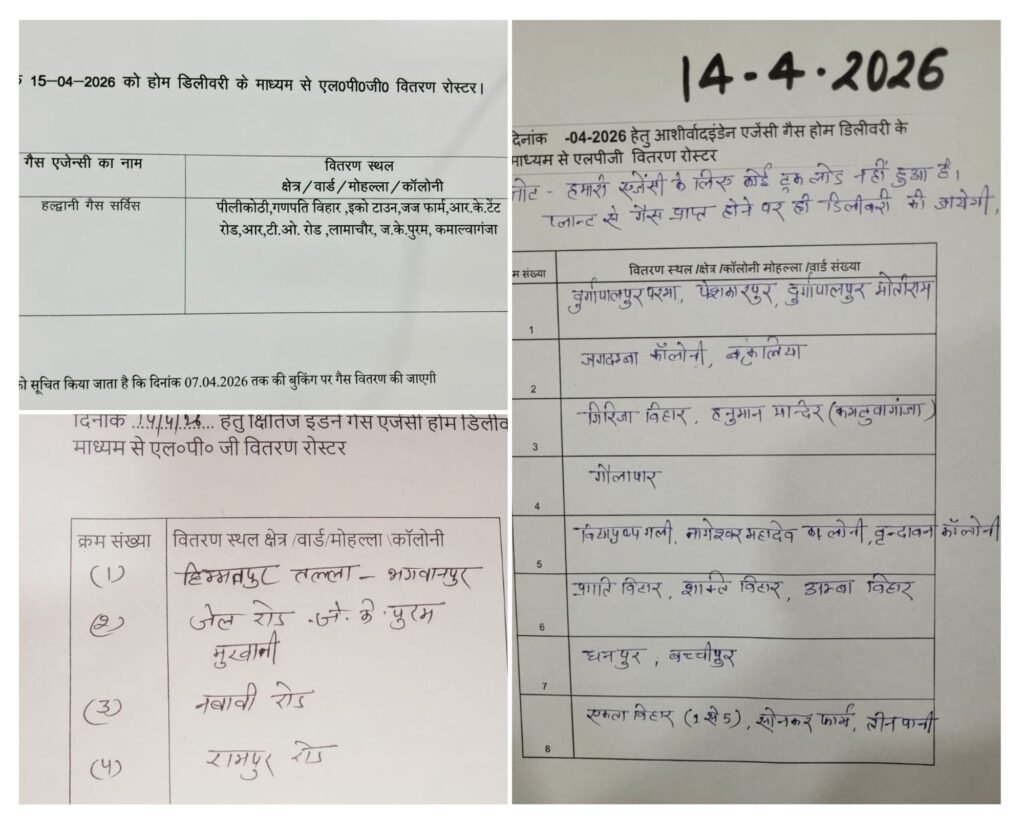 15-04-2026 को होम डिलीवरी के माध्यम से एल0पी0जी0 वितरण रोस्टर।
गैस एजेन्सी का नाम
वितरण स्थल
क्षेत्र / वार्ड / मोहल्ला / कॉलोनी
हल्द्वानी गैस सर्विस
पीलीकोठी,गणपति विहार ,इको टाउन,जज फार्म,आर.के.टेंट
रोड,आर,टी.ओ. रोड ,लामाचौर, ज.के.पुरम, कमाल्वागंजा
को सूचित किया जाता है कि दिनांक 07.04.2026 तक की बुकिंग पर गैस वितरण की जाएगी
दिनांक ..14/4/26... हेतु क्षितिज इंडेन गैस एजेंसी होम डिलीव
माध्यम से एल०पी० जी वितरण रोस्टर
क्रम संख्या
वितरण स्थल क्षेत्र /वार्ड/मोहल्ला \कॉलोनी
(1) हिम्मतपुर तल्ला - भगवानपुर
(2) जेल रोड .जे. के. पुरम
मुखानी
(3) नवाबी रोड
(4) रामपुर रोड
14-4.2026
दिनांक -04-2026 हेतु आशीर्वादइंडेन एजेंसी गैस होम डिलीवरी के
माध्यम से एलपीजी वितरण रोस्टर
नोट - हमारी एजेंसी के लिए कोई ट्रक लोड नहीं हुआ है।
प्लान्ट से गैस प्राप्त होने पर ही डिलीवरी की जायेगी,
म संख्या
वितरण स्थल /क्षेत्र /कॉलोनी मोहल्ला /वार्ड संख्या
1 दुर्गापालपुर परमा, पेशकारपुर, दुर्गापालपुर मोतीराम
2 जगदम्बा कॉलोनी,
3 गिरिजा विहार, हनुमान मन्दिर (कमलुवागांजा)
4 गौलापार
5 गली, नागेश्वर महादेव कालोनी, वृन्दावन कॉलोनी
6 प्रगति विहार, शक्ति विहार, अम्बा विहार
7 धनपुर, बच्चीपुर
8 एकता विहार (1 से 5), सोनकर फार्म, तीन पानी